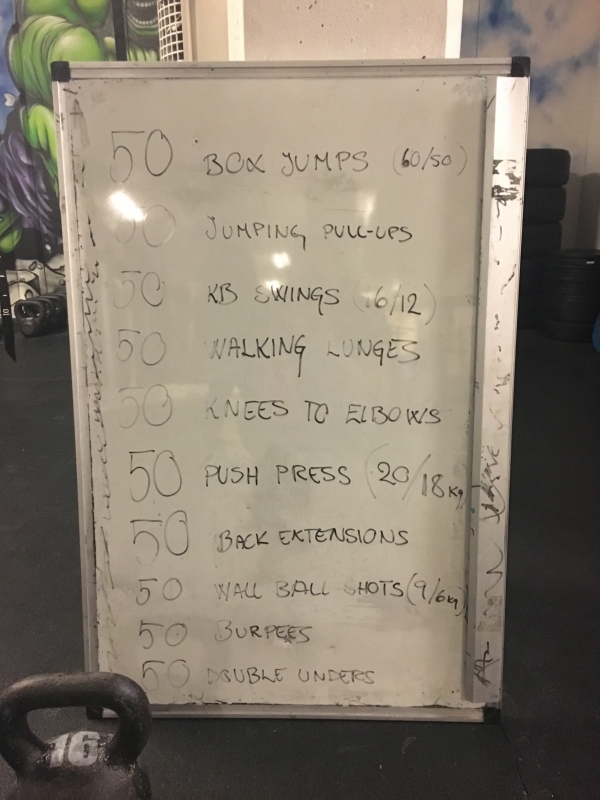 50 BOX JUMPS (60/50)
50 JUMPING PULL-UPS
50 KB SWINGS (16/12)
50 WALKING LUNGES
50 KNEES TO ELBOWS
50 PUSH PRESS (20/18Kg)
50 BACK EXTENSIONS
50 WALL BALL SHOTS (9/6Kg)
50 BURPEES
50 DOUBLE UNDERS
16